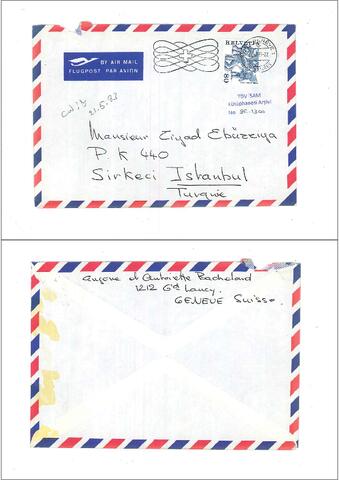 BY AIR MAIL
FLUGPOST PAR AVION
HELVETIA
80
TDV İSAM
Kütüphanesi Arşivi
No
21.5.83
Monsieur Ziyad Ebüzziya
P.K 440
Sirkeci Istanbul
Turquie
et Antoinette Bachelard
1212 Gd Lancy.
GENEVE Suisse